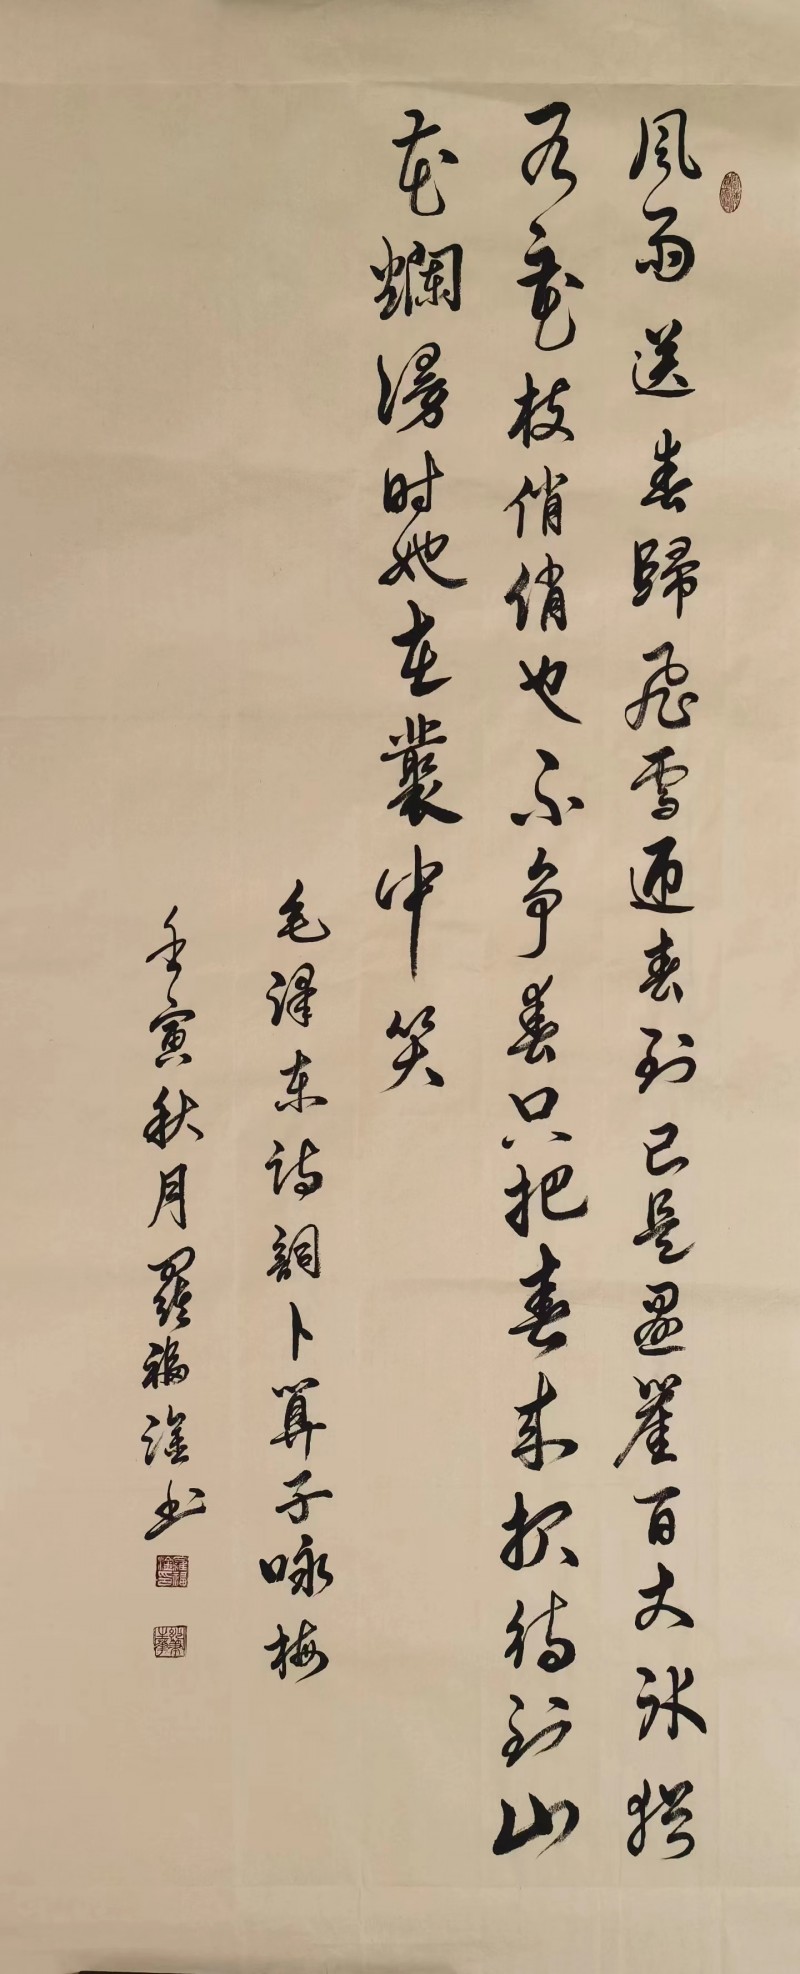 风雨送春歸飛雪迎春到已是悬崖百丈冰猶
有花枝俏俏也不争春只把春来报待到山
花爛漫时她在叢中笑
毛泽东诗詞卜算子咏梅
壬寅秋月羅福淦书